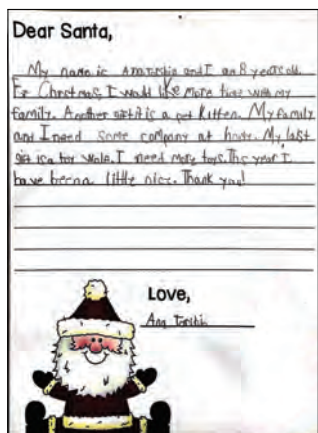 Dear Santa,
My name is and I am 8 years old.
For Christmas, I would like more time with my
family. Another gift it is a pet kitten. My family
and I need some company at home. My last
gift is a toy I need more toys. This year I
have been a little nice. Thank you!
Love,